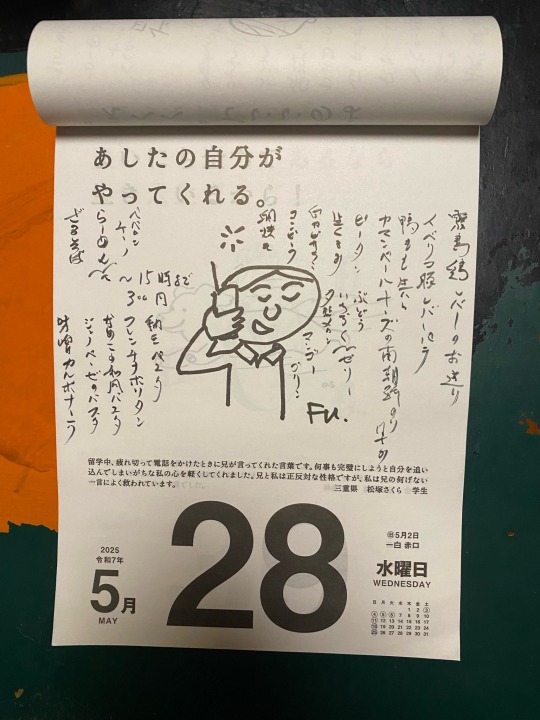 あしたの自分が
やってくれる。
イベリコ豚レバーパテ
ピータン
ぶどう
ゼリー
マンゴー
プリン
コンビーフ
ペペロン
チーノ
らーめん
ざるそば
15時まで
〜300円
納豆パスタ
フレンチナポリタン
なめこ和風パスタ
ジェノベーゼのパスタ
味噌カルボナーラ
Fu.
留学中、疲れ切って電話をかけたときに兄が言ってくれた言葉です。何事も完璧にしようと自分を追い
込んでしまいがちな私の心を軽くしてくれました。兄と私は正反対な性格ですが、私は兄の何げない
一言によく救われています。
三重県 松塚さくら 学生
2025
令和7年
5月
MAY
28
旧5月2日
一白 赤口
水曜日
WEDNESDAY
日 月 火 水 木 金 土
1 2 3
4 5 6 7 8 9 10
11 12 13 14 15 16 17
18 19 20 21 22 23 24
25 26 27 28 29 30 31